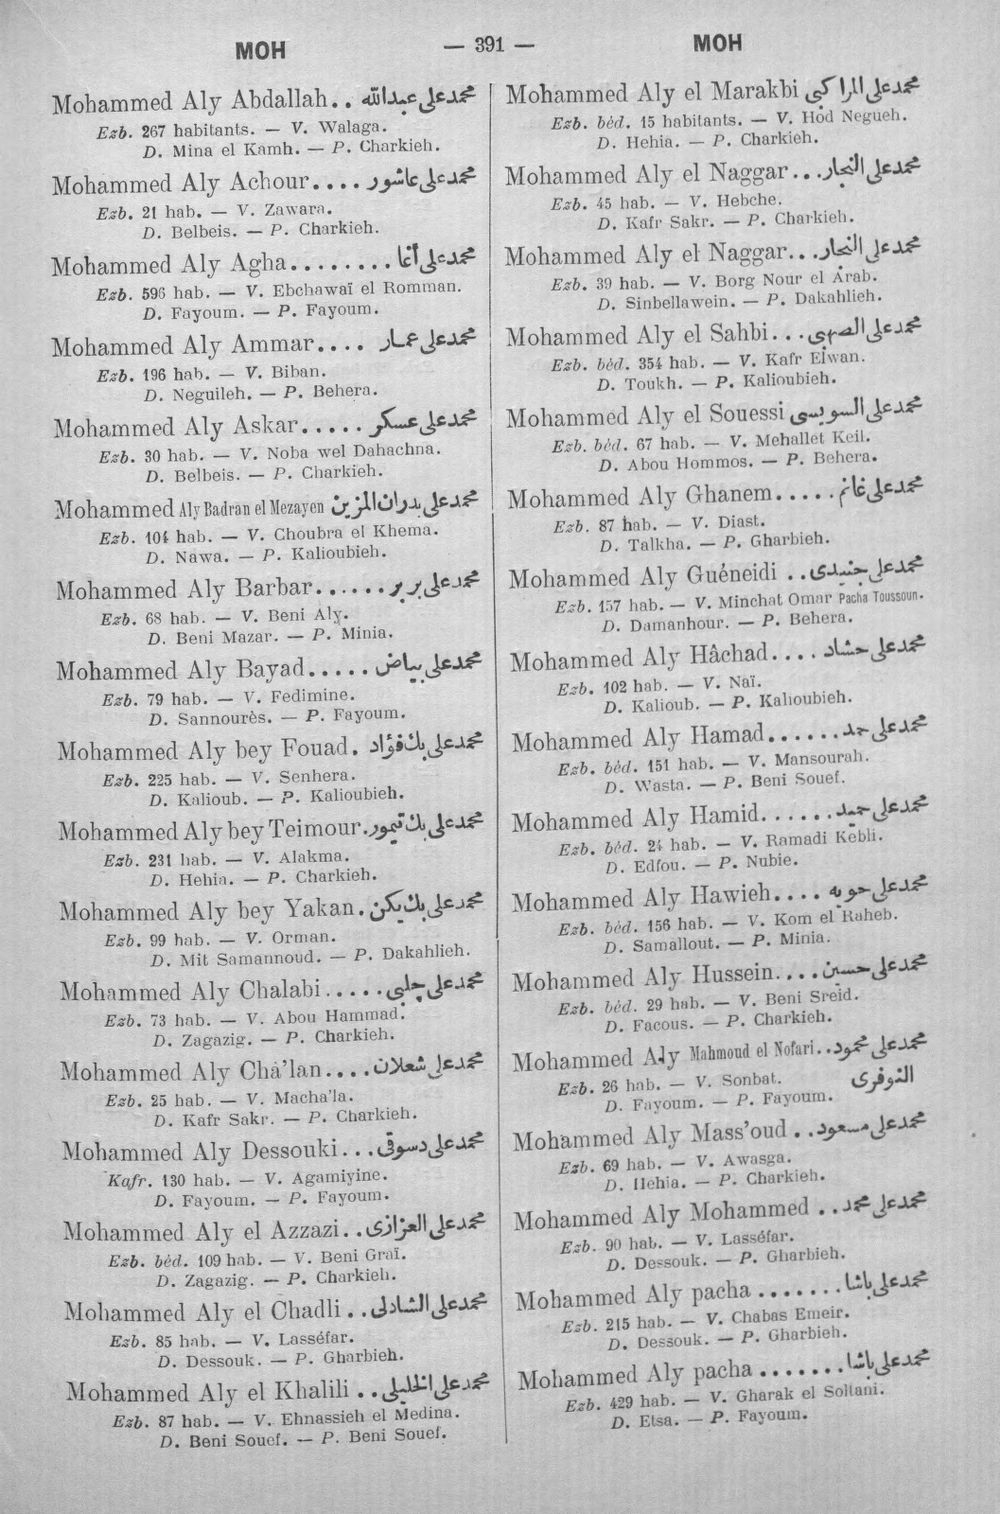 MOH
— 391 —
MOH
Mohammed Aly Abdallah.. محمد على عبد الله
Ezb. 267 habitants. — V. Walaga.
D. Mina el Kamh. — P. Charkieh.
Mohammed Aly Achour.... محمد على عاشور
Ezb. 21 hab. — V. Zawara.
D. Belbeis. — P. Charkieh.
Mohammed Aly Agha........ محمد على أغا
Ezb. 596 hab. — V. Ebchawaï el Romman.
D. Fayoum. — P. Fayoum.
Mohammed Aly Ammar.... محمد على عمار
Ezb. 196 hab. — V. Biban.
D. Neguileh. — P. Behera.
Mohammed Aly Askar..... محمد على عسكر
Ezb. 30 hab. — V. Noba wel Dahachna.
D. Belbeis. — P. Charkieh.
Mohammed Aly Badran el Mezayen محمد على بدران المزين
Ezb. 104 hab. — V. Choubra el Khema.
D. Nawa. — P. Kalioubieh.
Mohammed Aly Barbar...... محمد على بربر
Ezb. 68 hab. — V. Beni Aly.
D. Beni Mazar. — P. Minia.
Mohammed Aly Bayad..... محمد على بياض
Ezb. 79 hab. — V. Fedimine.
D. Sannourès. — P. Fayoum.
Mohammed Aly bey Fouad. محمد على بك فؤاد
Ezb. 225 hab. — V. Senhera.
D. Kalioub. — P. Kalioubieh.
Mohammed Aly bey Teimour. محمد على بك تيمور
Ezb. 231 hab. — V. Alakma.
D. Hehia. — P. Charkieh.
Mohammed Aly bey Yakan. محمد على بك يكن
Ezb. 99 hab. — V. Orman.
D. Mit Samannoud. — P. Dakahlieh.
Mohammed Aly Chalabi..... محمد على چلبى
Ezb. 73 hab. — V. Abou Hammad.
D. Zagazig. — P. Charkieh.
Mohammed Aly Cha'lan.... محمد على شعلان
Ezb. 25 hab. — V. Macha'la.
D. Kafr Sakr. — P. Charkieh.
Mohammed Aly Dessouki... محمد على دسوقى
Kafr. 130 hab. — V. Agamiyine.
D. Fayoum. — P. Fayoum.
Mohammed Aly el Azzazi.. محمد على العزازى
Ezb. bèd. 109 hab. — V. Beni Graï.
D. Zagazig. — P. Charkieh.
Mohammed Aly el Chadli.. محمد على الشاذلى
Ezb. 85 hab. — V. Lasséfar.
D. Dessouk. — P. Gharbieh.
Mohammed Aly el Khalili.. محمد على الخليلى
Ezb. 87 hab. — V. Ehnassieh el Medina.
D. Beni Souef. — P. Beni Souef.
Mohammed Aly el Marakbi محمد على المراكبى
Ezb. bèd. 15 habitants. — V. Hod Negueh.
D. Hehia. — P. Charkieh.
Mohammed Aly el Naggar... محمد على النجار
Ezb. 45 hab. — V. Hebche.
D. Kafr Sakr. — P. Charkieh.
Mohammed Aly el Naggar... محمد على النجار
Ezb. 39 hab. — V. Borg Nour el Arab.
D. Sinbellawein. — P. Dakahlieh.
Mohammed Aly el Sahbi... محمد على الصهبى
Ezb. bèd. 354 hab. — V. Kafr Elwan.
D. Toukh. — P. Kalioubieh.
Mohammed Aly el Souessi محمد على السويسى
Ezb. bèd. 67 hab. — V. Mehallet Keil.
D. Abou Hommos. — P. Behera.
Mohammed Aly Ghanem..... محمد على غانم
Ezb. 87 hab. — V. Diast.
D. Talkha. — P. Gharbieh.
Mohammed Aly Guéneidi.. محمد على جنيدى
Ezb. 157 hab. — V. Minchat Omar Pacha Toussoun.
D. Damanhour. — P. Behera.
Mohammed Aly Hâchad.... محمد على حشاد
Ezb. 102 hab. — V. Naï.
D. Kalioub. — P. Kalioubieh.
Mohammed Aly Hamad...... محمد على حمد
Ezb. bèd. 151 hab. — V. Mansourah.
D. Wasta. — P. Beni Souef.
Mohammed Aly Hamid...... محمد على حميد
Ezb. bèd. 24 hab. — V. Ramadi Kebli.
D. Edfou. — P. Nubie.
Mohammed Aly Hawieh.... محمد على حويه
Ezb. bèd. 156 hab. — V. Kom el Raheb.
D. Samallout. — P. Minia.
Mohammed Aly Hussein.... محمد على حسين
Ezb. bèd. 29 hab. — V. Beni Sreid.
D. Facous. — P. Charkieh.
Mohammed Aly Mahmoud el Nofari.. محمد على محمود
النوفرى
Ezb. 26 hab. — V. Sonbat.
D. Fayoum. — P. Fayoum.
Mohammed Aly Mass'oud.. محمد على مسعود
Ezb. 69 hab. — V. Awasga.
D. Hehia. — P. Charkieh.
Mohammed Aly Mohammed.. محمد على محمد
Ezb. 90 hab. — V. Lasséfar.
D. Dessouk. — P. Gharbieh.
Mohammed Aly pacha....... محمد على باشا
Ezb. 215 hab. — V. Chabas Emeir.
D. Dessouk. — P. Gharbieh.
Mohammed Aly pacha....... محمد على باشا
Ezb. 429 hab. — V. Gharak el Soltani.
D. Etsa. — P. Fayoum.